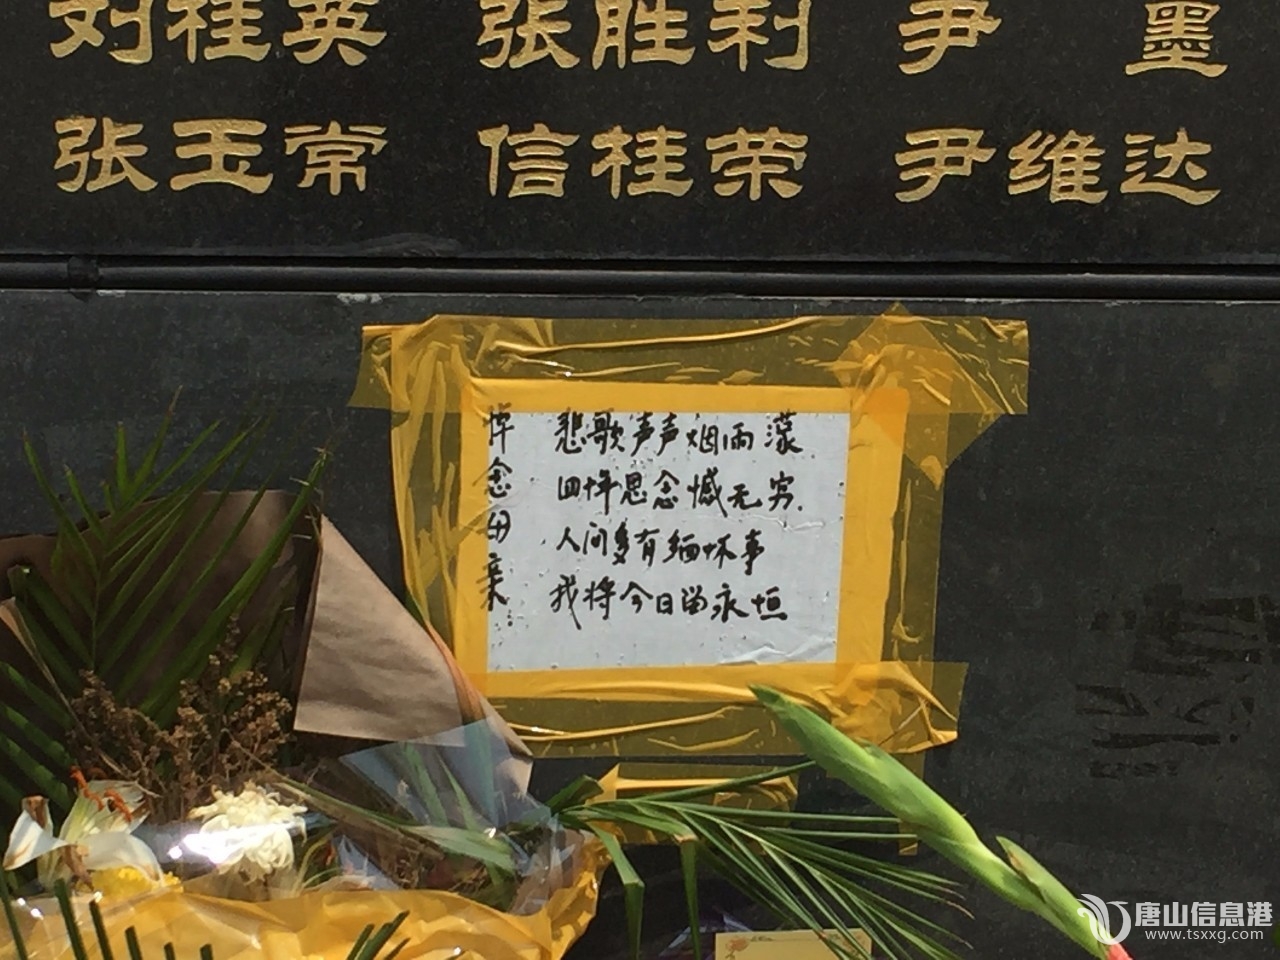 刘桂英 张胜利 尹 墨
张玉常 信桂荣 尹维达
悼念母亲
悲歌声声烟雨濛
四十年思念憾无穷.
人间多有缅怀事
我将今日当永恒
唐山信息港
www.tsxxg.com